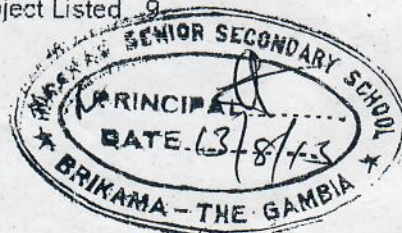 ject Listed 9
SENIOR SECONDARY SCHOOL
PRINCIPAL
DATE 13/8/13
BRIKAMA - THE GAMBIA